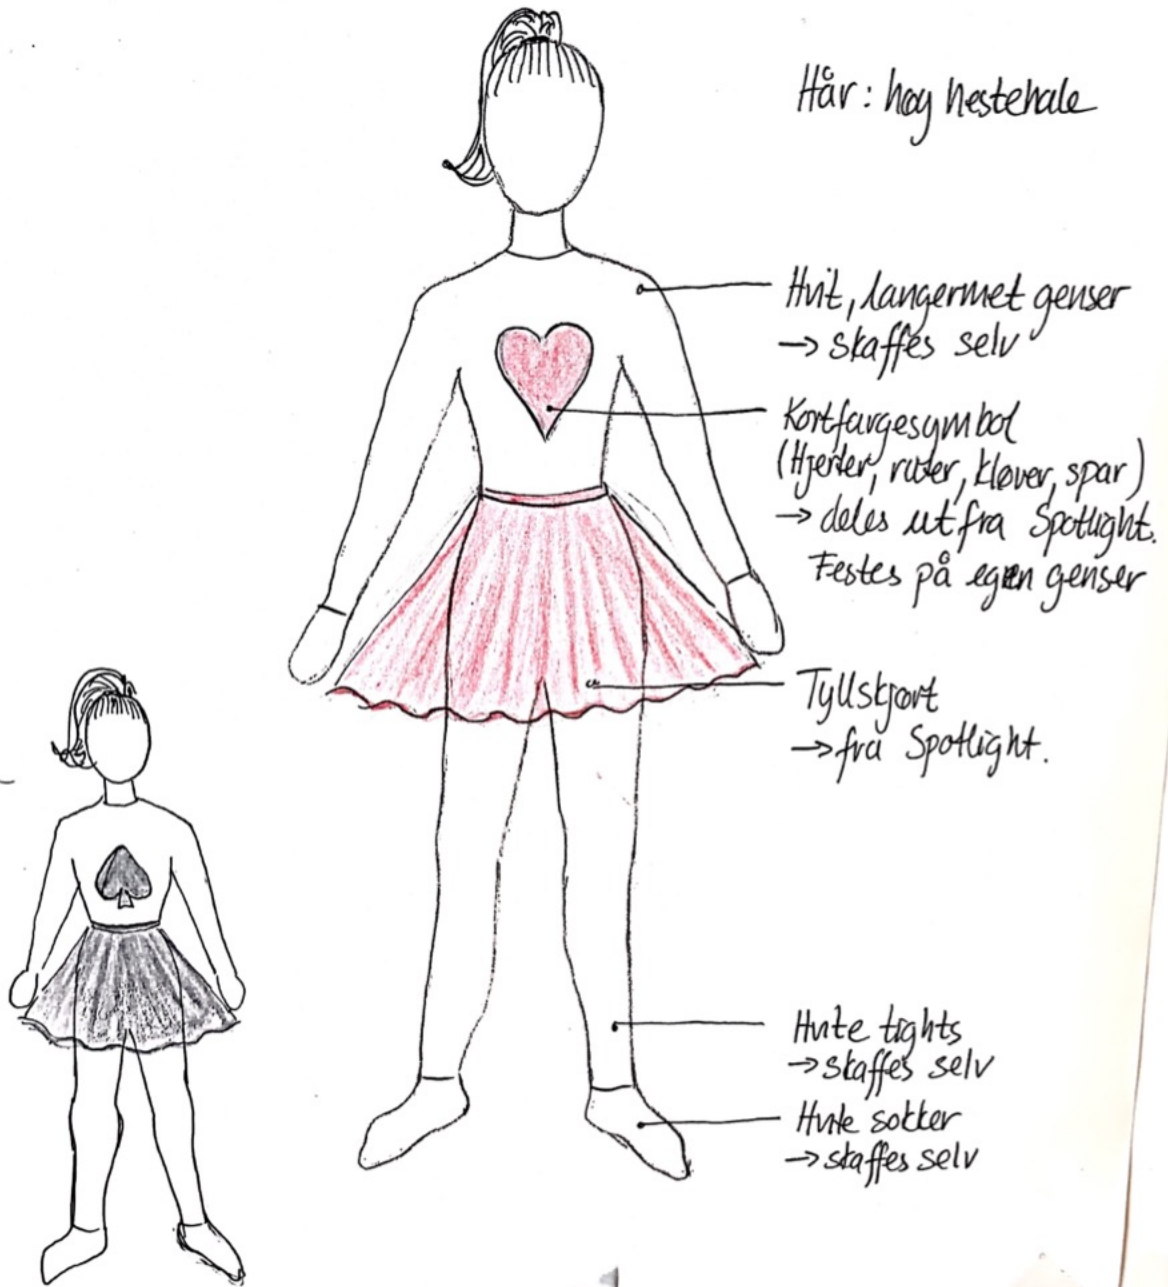 Hår: høy hestehale
Hvit, langermet genser
→ skaffes selv
Kortfargesymbol
(Hjerter, ruter, kløver, spar)
→ deles ut fra Spotlight.
Festes på egen genser
Tyllskjørt
→ fra Spotlight.
Hvite tights
→ skaffes selv
Hvite sokker
→ skaffes selv